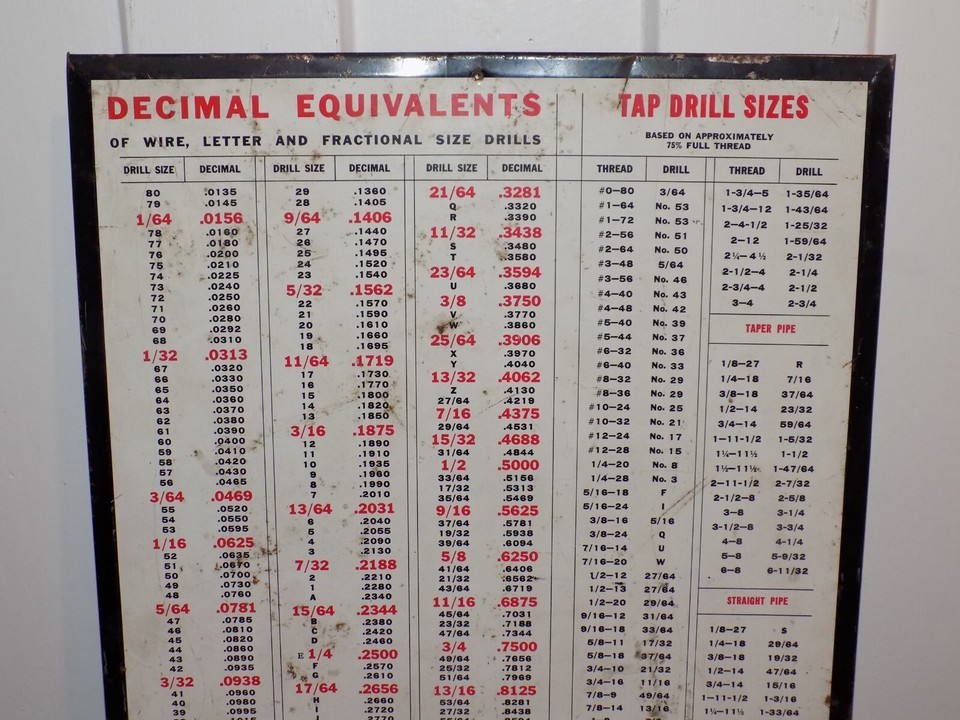 DECIMAL EQUIVALENTS
OF WIRE, LETTER AND FRACTIONAL SIZE DRILLS
DRILL SIZE DECIMAL
80 .0135
79 .0145
1/64 .0156
78 .0160
77 .0180
76 .0200
75 .0210
74 .0225
73 .0240
72 .0250
71 .0260
70 .0280
69 .0292
68 .0310
1/32 .0313
67 .0320
66 .0330
65 .0350
64 .0360
63 .0370
62 .0380
61 .0390
60 .0400
59 .0410
58 .0420
57 .0430
56 .0465
3/64 .0469
55 .0520
54 .0550
53 .0595
1/16 .0625
52 .0635
51 .0670
50 .0700
49 .0730
48 .0760
5/64 .0781
47 .0785
46 .0810
45 .0820
44 .0860
43 .0890
42 .0935
3/32 .0938
41 .0960
40 .0980
39 .0995
DRILL SIZE DECIMAL
29 .1360
28 .1405
9/64 .1406
27 .1440
26 .1470
25 .1495
24 .1520
23 .1540
5/32 .1562
22 .1570
21 .1590
20 .1610
19 .1660
18 .1695
11/64 .1719
17 .1730
16 .1770
15 .1800
14 .1820
13 .1850
3/16 .1875
12 .1890
11 .1910
10 .1935
9 .1960
8 .1990
7 .2010
13/64 .2031
6 .2040
5 .2055
4 .2090
3 .2130
7/32 .2188
2 .2210
1 .2280
A .2340
15/64 .2344
B .2380
C .2420
D .2460
E 1/4 .2500
F .2570
G .2610
17/64 .2656
H .2660
I .2720
DRILL SIZE DECIMAL
21/64 .3281
Q .3320
R .3390
11/32 .3438
S .3480
T .3580
23/64 .3594
U .3680
3/8 .3750
V .3770
W .3860
25/64 .3906
X .3970
Y .4040
13/32 .4062
Z .4130
27/64 .4219
7/16 .4375
29/64 .4531
15/32 .4688
31/64 .4844
1/2 .5000
33/64 .5156
17/32 .5313
35/64 .5469
9/16 .5625
37/64 .5781
19/32 .5938
39/64 .6094
5/8 .6250
41/64 .6406
21/32 .6562
43/64 .6719
11/16 .6875
45/64 .7031
23/32 .7188
47/64 .7344
3/4 .7500
49/64 .7656
25/32 .7812
51/64 .7969
13/16 .8125
53/64 .8281
27/32 .8438
TAP DRILL SIZES
BASED ON APPROXIMATELY
75% FULL THREAD
THREAD DRILL
#0–80 3/64
#1–64 No. 53
#1–72 No. 53
#2–56 No. 51
#2–64 No. 50
#3–48 5/64
#3–56 No. 46
#4–40 No. 43
#4–48 No. 42
#5–40 No. 39
#5–44 No. 37
#6–32 No. 36
#6–40 No. 33
#8–32 No. 29
#8–36 No. 29
#10–24 No. 25
#10–32 No. 21
#12–24 No. 17
#12–28 No. 15
1/4–20 No. 8
1/4–28 No. 3
5/16–18 F
5/16–24 I
3/8–16 5/16
3/8–24 Q
7/16–14 U
7/16–20 W
1/2–12 27/64
1/2–13 27/64
1/2–20 29/64
9/16–12 31/64
9/16–18 33/64
5/8–11 17/32
5/8–18 37/64
3/4–10 21/32
3/4–16 11/16
7/8–9 49/64
7/8–14 13/16
THREAD DRILL
1-3/4–5 1-35/64
1-3/4–12 1-43/64
2–4-1/2 1-25/32
2–12 1-59/64
2¼–4½ 2-1/32
2-1/2–4 2-1/4
2-3/4–4 2-1/2
3–4 2-3/4
TAPER PIPE
1/8–27 R
1/4–18 7/16
3/8–18 37/64
1/2–14 23/32
3/4–14 59/64
1–11-1/2 1-5/32
1¼–11½ 1-1/2
1½–11½ 1-47/64
2–11-1/2 2-7/32
2-1/2–8 2-5/8
3–8 3-1/4
3-1/2–8 3-3/4
4–8 4-1/4
5–8 5-9/32
6–8 6-11/32
STRAIGHT PIPE
1/8–27 S
1/4–18 29/64
3/8–18 19/32
1/2–14 47/64
3/4–14 15/16
1–11-1/2 1-3/16
1¼–11½ 1-33/64